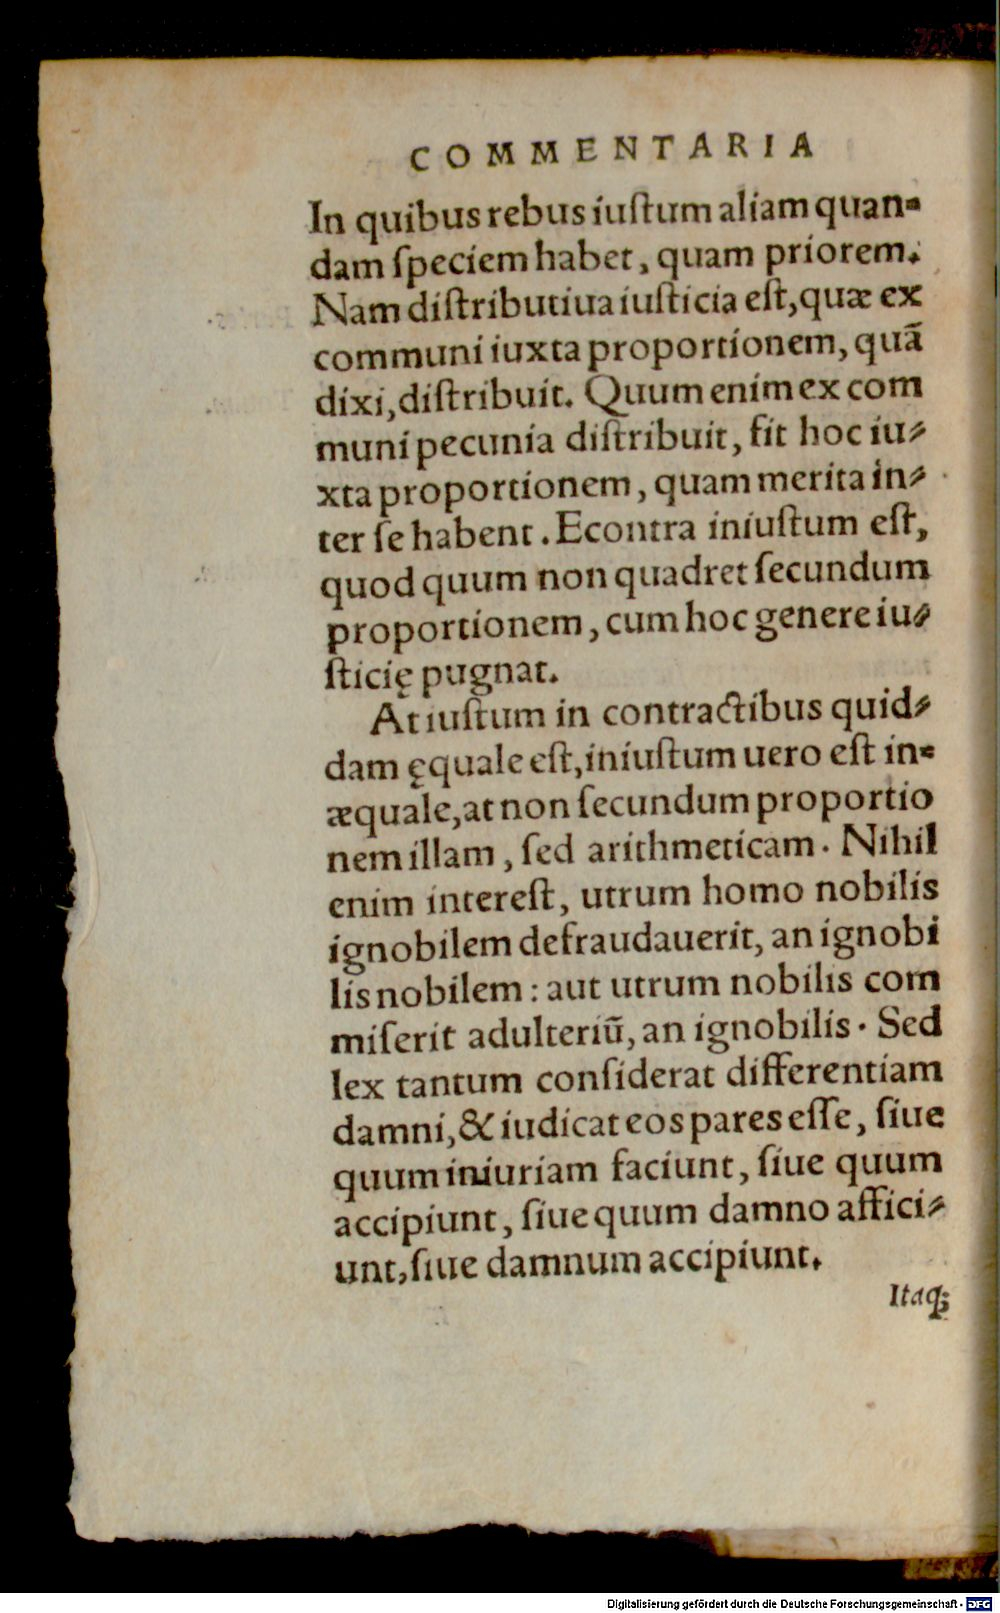 COMMENTARIA
In quibus rebus iuſtum aliam quan-
dam ſpeciem habet, quam priorem.
Nam diſtributiua iuſticia eſt, quæ ex
communi iuxta proportionem, quā
dixi, diſtribuit. Quum enim ex com
muni pecunia diſtribuit, fit hoc iu-
xta proportionem, quam merita in-
ter ſe habent. Econtra iniuſtum eſt,
quod quum non quadret ſecundum
proportionem, cum hoc genere iu-
ſticię pugnat.
At iuſtum in contractibus quid-
dam ęquale eſt, iniuſtum uero eſt in-
æquale, at non ſecundum proportio
nem illam, ſed arithmeticam. Nihil
enim intereſt, utrum homo nobilis
ignobilem defraudauerit, an ignobi
lis nobilem: aut utrum nobilis com
miſerit adulteriū, an ignobilis. Sed
lex tantum conſiderat differentiam
damni, & iudicat eos pares eſſe, ſiue
quum iniuriam faciunt, ſiue quum
accipiunt, ſiue quum damno affici-
unt, ſiue damnum accipiunt.
Itaq;
Digitalisierung gefördert durch die Deutsche Forschungsgemeinschaft - DFG